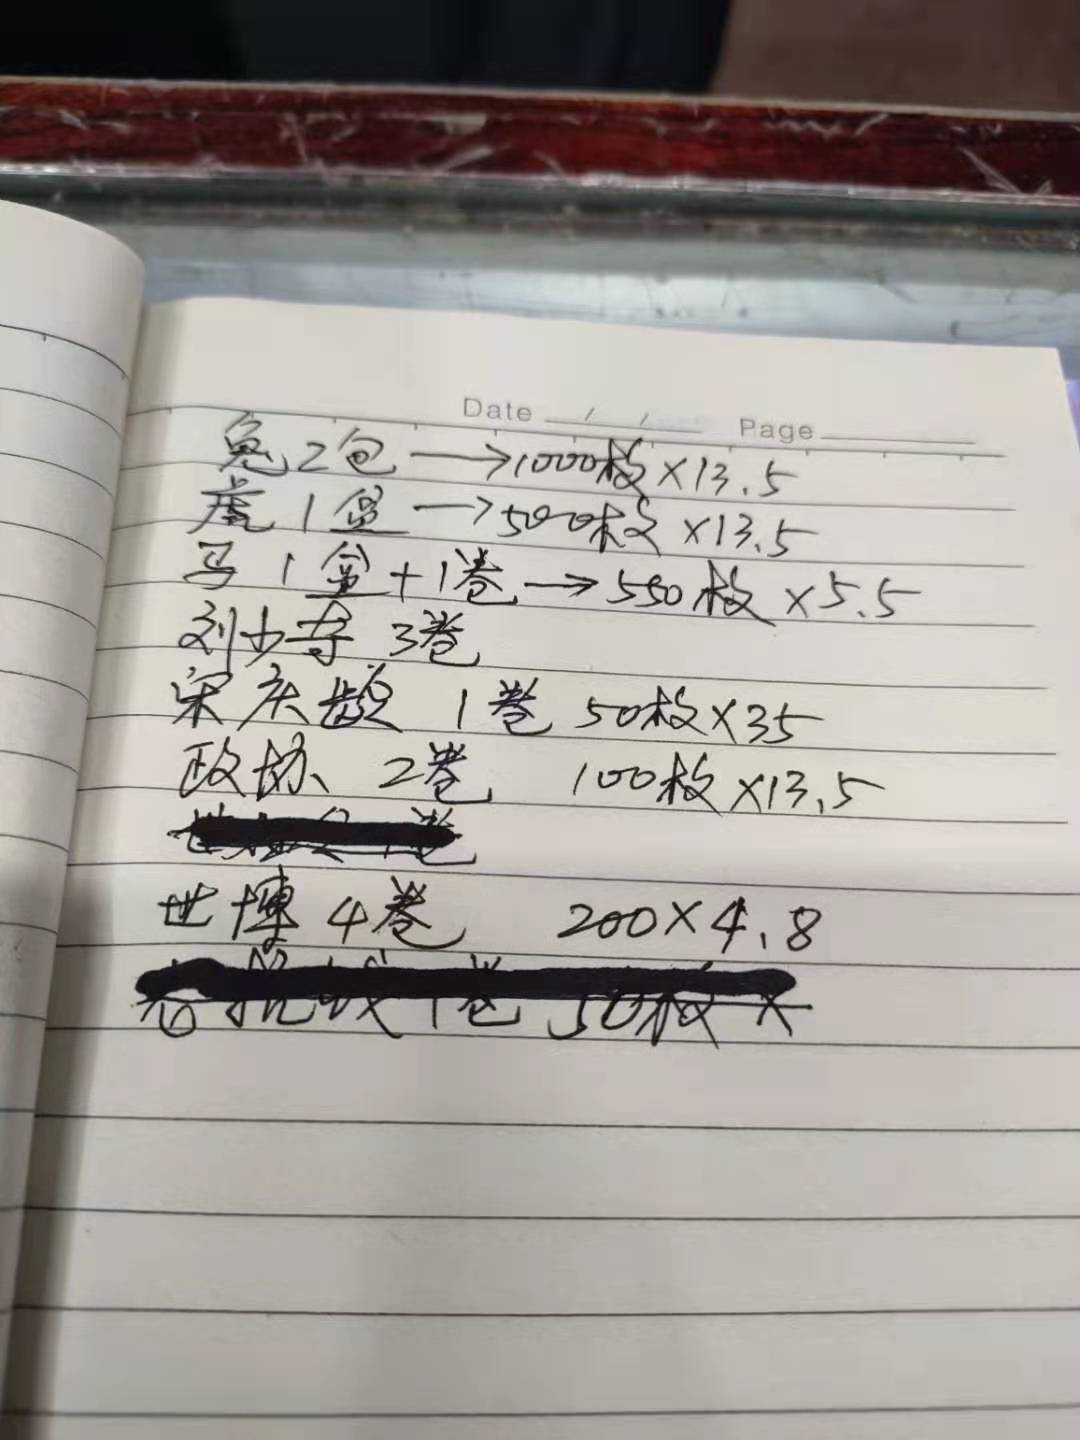 Date / / Page
兔2包→1000枚×13.5
虎1盒→500枚×13.5
马1盒+1卷→550枚×5.5
刘少奇 3卷
宋庆龄 1卷 50枚×35
政协 2卷 100枚×13.5
世博 4卷 200×4.8